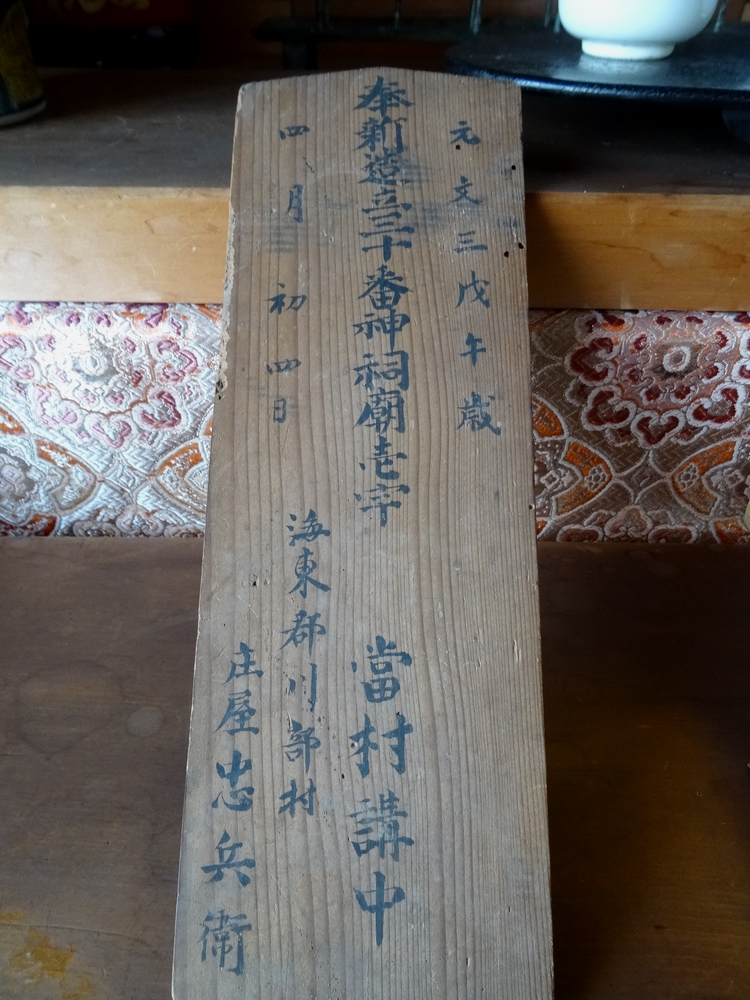 奉新造立三十番神祠廟壱宇
元文三戊午歳
四月初四日
當村講中
海東郡川部村
庄屋忠兵衛